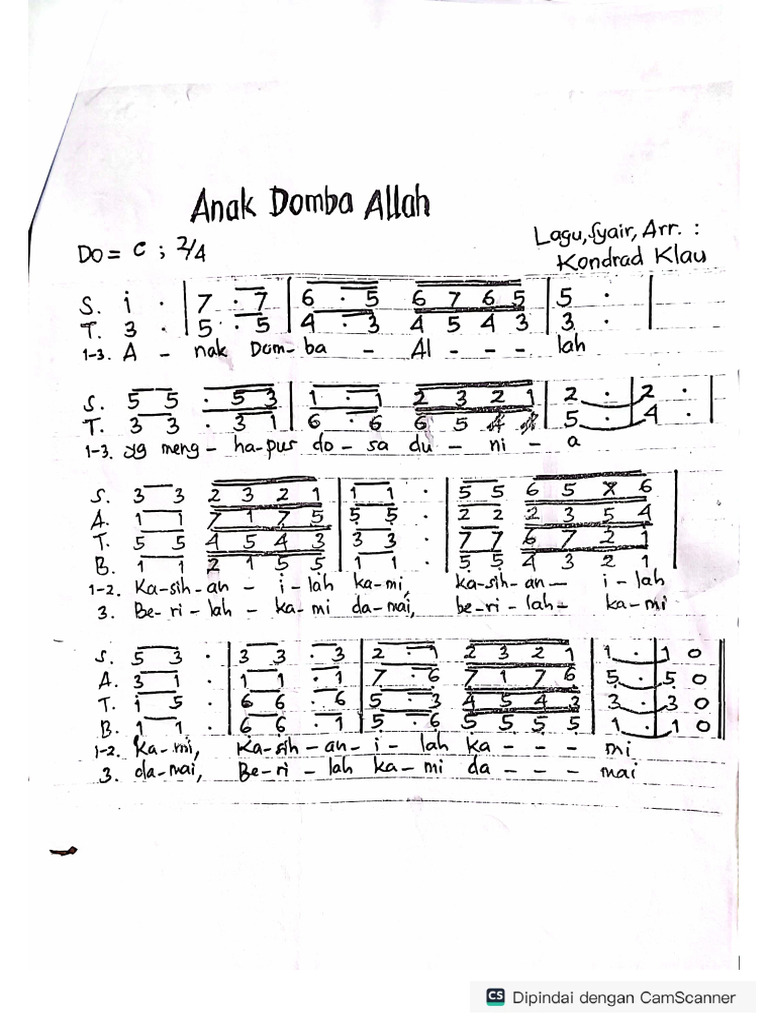 Anak Domba Allah
Do = C ; 2/4
Lagu, Syair, Arr. :
Kondrad Klau
S. i · | 7 · 7 | 6 · 5 6 7 6 5 | 5 · |
T. 3 · | 5 · 5 | 4 · 3 4 5 4 3 | 3 · |
1-3. A - nak Dom-ba - Al - - - lah
S. 5 5 · 5 3 | 1 · 1 2 3 2 1 | 2 · | 2 · |
T. 3 3 · 3 1 | 6 · 6 6 5 | 5 · | 4 · |
1-3. yg meng - ha-pus do - sa du - ni - a
S. 3 3 2 3 2 1 | 1 1 · | 5 5 6 5 X 6 |
A. 1 1 7 1 7 5 | 5 5 · | 2 2 2 3 5 4 |
T. 5 5 4 5 4 3 | 3 3 · | 7 7 6 7 2 1 |
B. 1 1 2 1 5 5 | 1 1 · | 5 5 4 3 2 1 |
1-2. Ka-sih-an - i - lah ka-mi, ka-sih-an - i - lah
3. Be-ri-lah - ka-mi da-mai, be-ri-lah - ka-mi
S. 5 3 · | 3 3 · 3 | 2 · 1 2 3 2 1 | 1 · | 1 0 ||
A. 3 1 · | 1 1 · 1 | 7 · 6 7 1 7 6 | 5 · | 5 0 ||
T. i 5 · | 6 6 · 6 | 5 · 3 4 5 4 3 | 3 · | 3 0 ||
B. 1 1 · | 6 6 · 1 | 5 · 6 5 5 5 5 | 1 · | 1 0 ||
1-2. Ka-mi, Ka-sih-an-i - lah ka - - - mi
3. da-mai, Be-ri - lah ka-mi da - - - mai
CS Dipindai dengan CamScanner